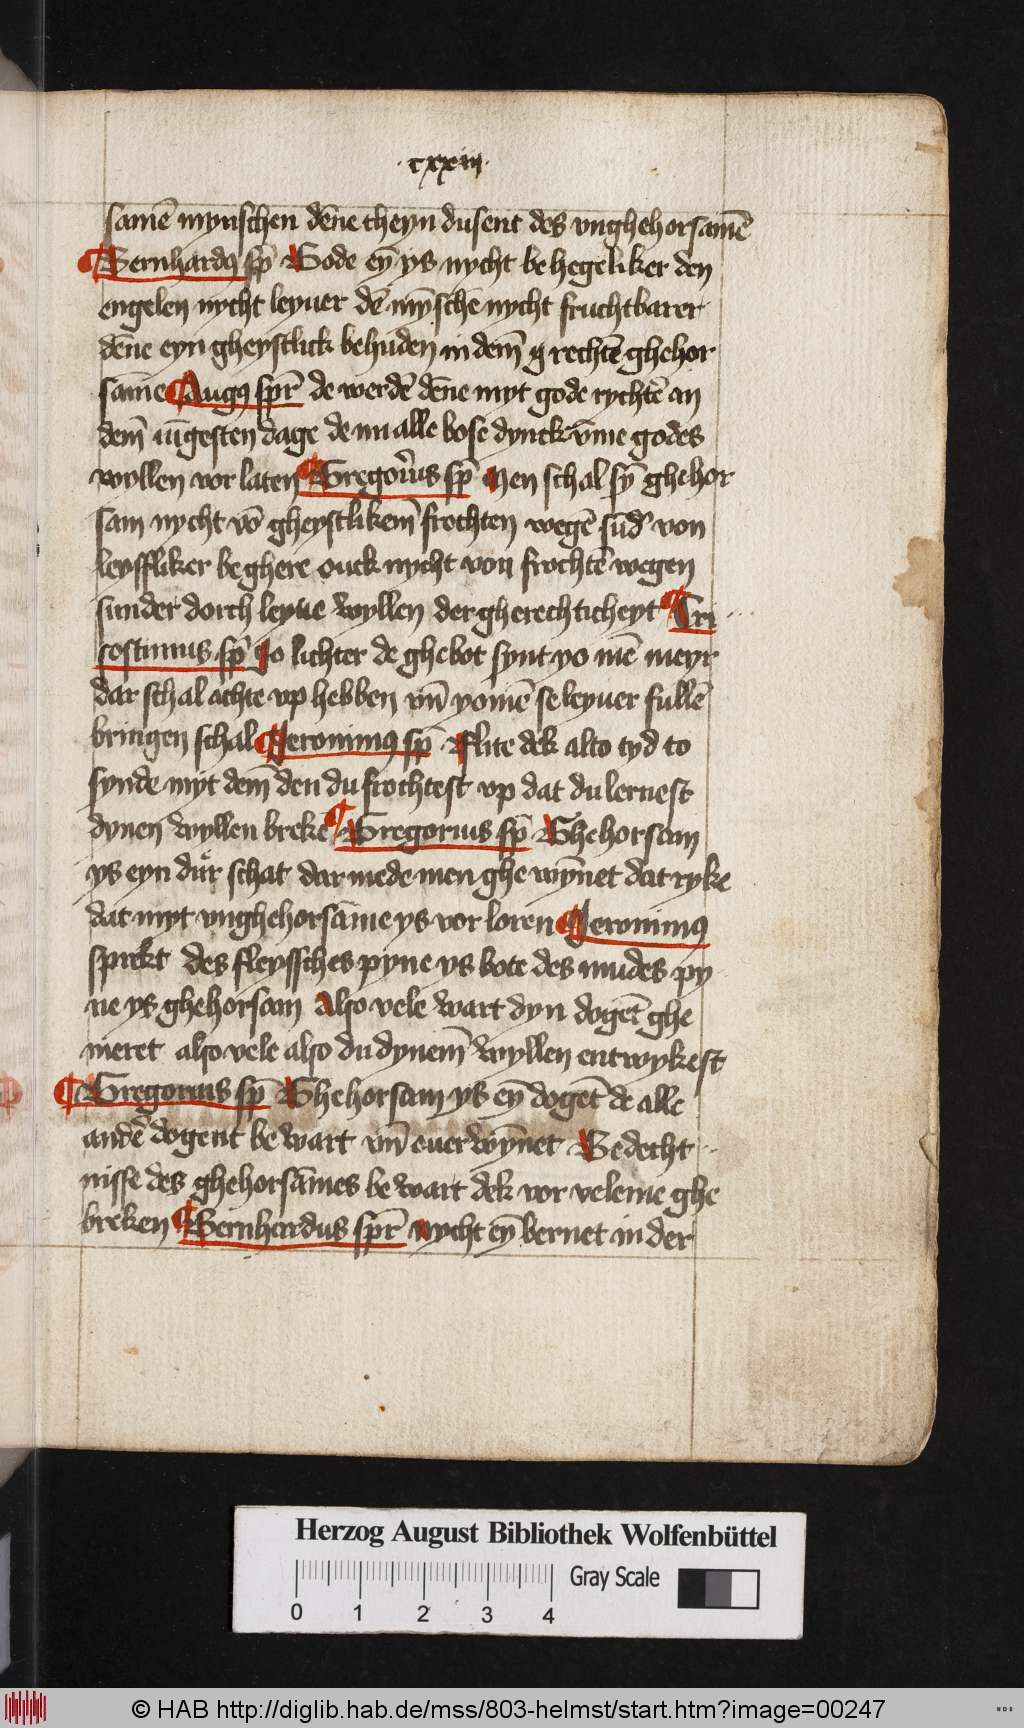 ·cxxiij·
samē mynschen dēne theyn dusent des vnghehorsamē
¶ Bernhardꝯ sp̄ Gode eȳ ys nycht behegeliker den
engelen nycht leyuer dē mȳschē nycht fruchtbarer
dēne eyn gheystlick behuden in dem̄ rechtē ghehor
sāme ¶ Augꝯ spr̄ de werdē dēne myt gode rychtē an
dem̄ iūgesten dage de nu alle bose dynck vm̄e godes
wyllen vor laten ¶ Gregorius sp̄ Men schal sȳ ghehor
sam nycht vō gheystlikem̄ frochten wegē sūd' von
leyffliker beghere ouck nycht von frochtē wegen
sunder dorch leyue wyllen der gherechticheyt ¶ Cri
costimus sp̄ Jo lichter de ghebot synt yo mē meyr
dar schal achte vp hebben vn̄ yo mē se leyuer fullē
bringen schal ¶ Jeronimꝯ sp̄ Flite dek alto tyd to
synde myt dem̄ den du frochtest vp dat du lernest
dynen wyllen brekē ¶ Gregorius sp̄ Ghehorsam
ys eyn dur schat dar mede men ghe wȳnet dat ryke
dat myt vnghehorsāme ys vor loren ¶ Jeronimꝯ
sprekt des fleyssches pyne ys bote des mudes py
ne ys ghehorsam Also vele wart dyn dogēt ghe
meret also vele also du dynem̄ wyllen entwykest
¶ Gregorius sp̄ Ghehorsam ys eȳ dogēt de alle
andē dogent be wart vn̄ euer wȳnet Bedecht
nisse des ghehorsāmes be wart dek vor veleme ghe
breken ¶ Bernhardus spr̄ Nycht eȳ bernet in der
Herzog August Bibliothek Wolfenbüttel
Gray Scale
0 1 2 3 4
© HAB http://diglib.hab.de/mss/803-helmst/start.htm?image=00247